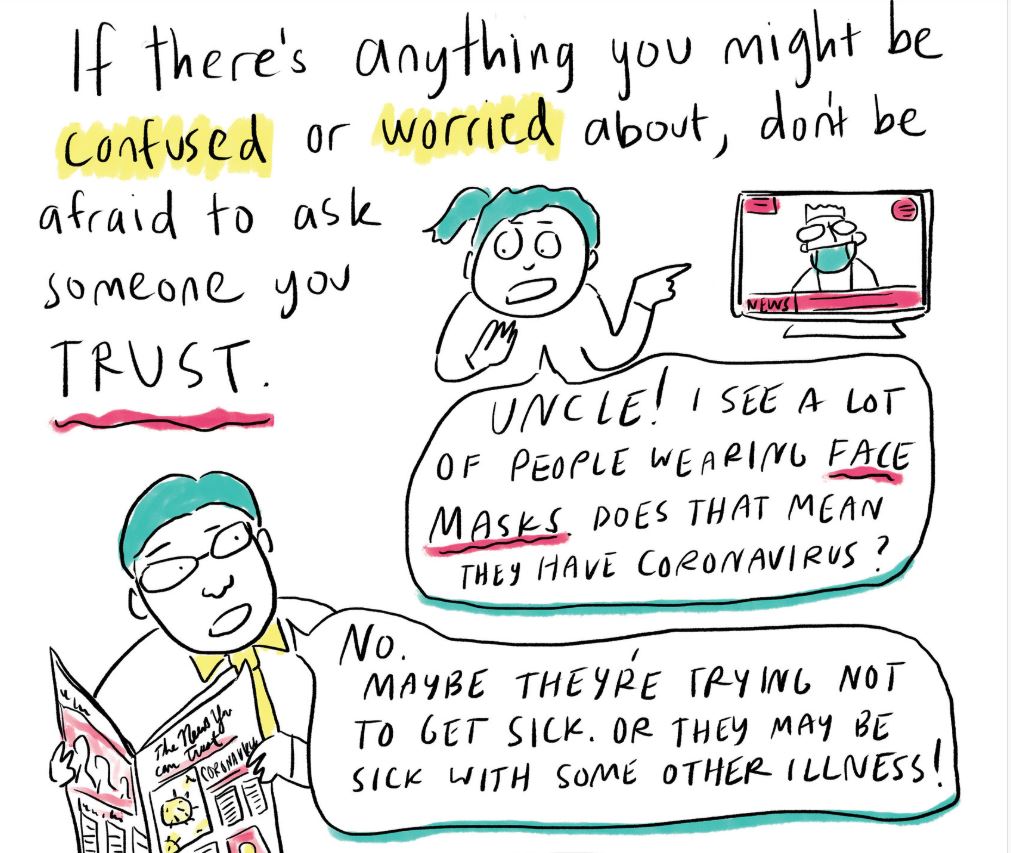 If there's anything you might be
confused or worried about, don't be
afraid to ask
someone you
TRUST.
NEWS
UNCLE! I SEE A LOT
OF PEOPLE WEARING FACE
MASKS. DOES THAT MEAN
THEY HAVE CORONAVIRUS?
NO.
MAYBE THEY'RE TRYING NOT
TO GET SICK. OR THEY MAY BE
SICK WITH SOME OTHER ILLNESS!
The News You
can Trust
CORONAVIRUS